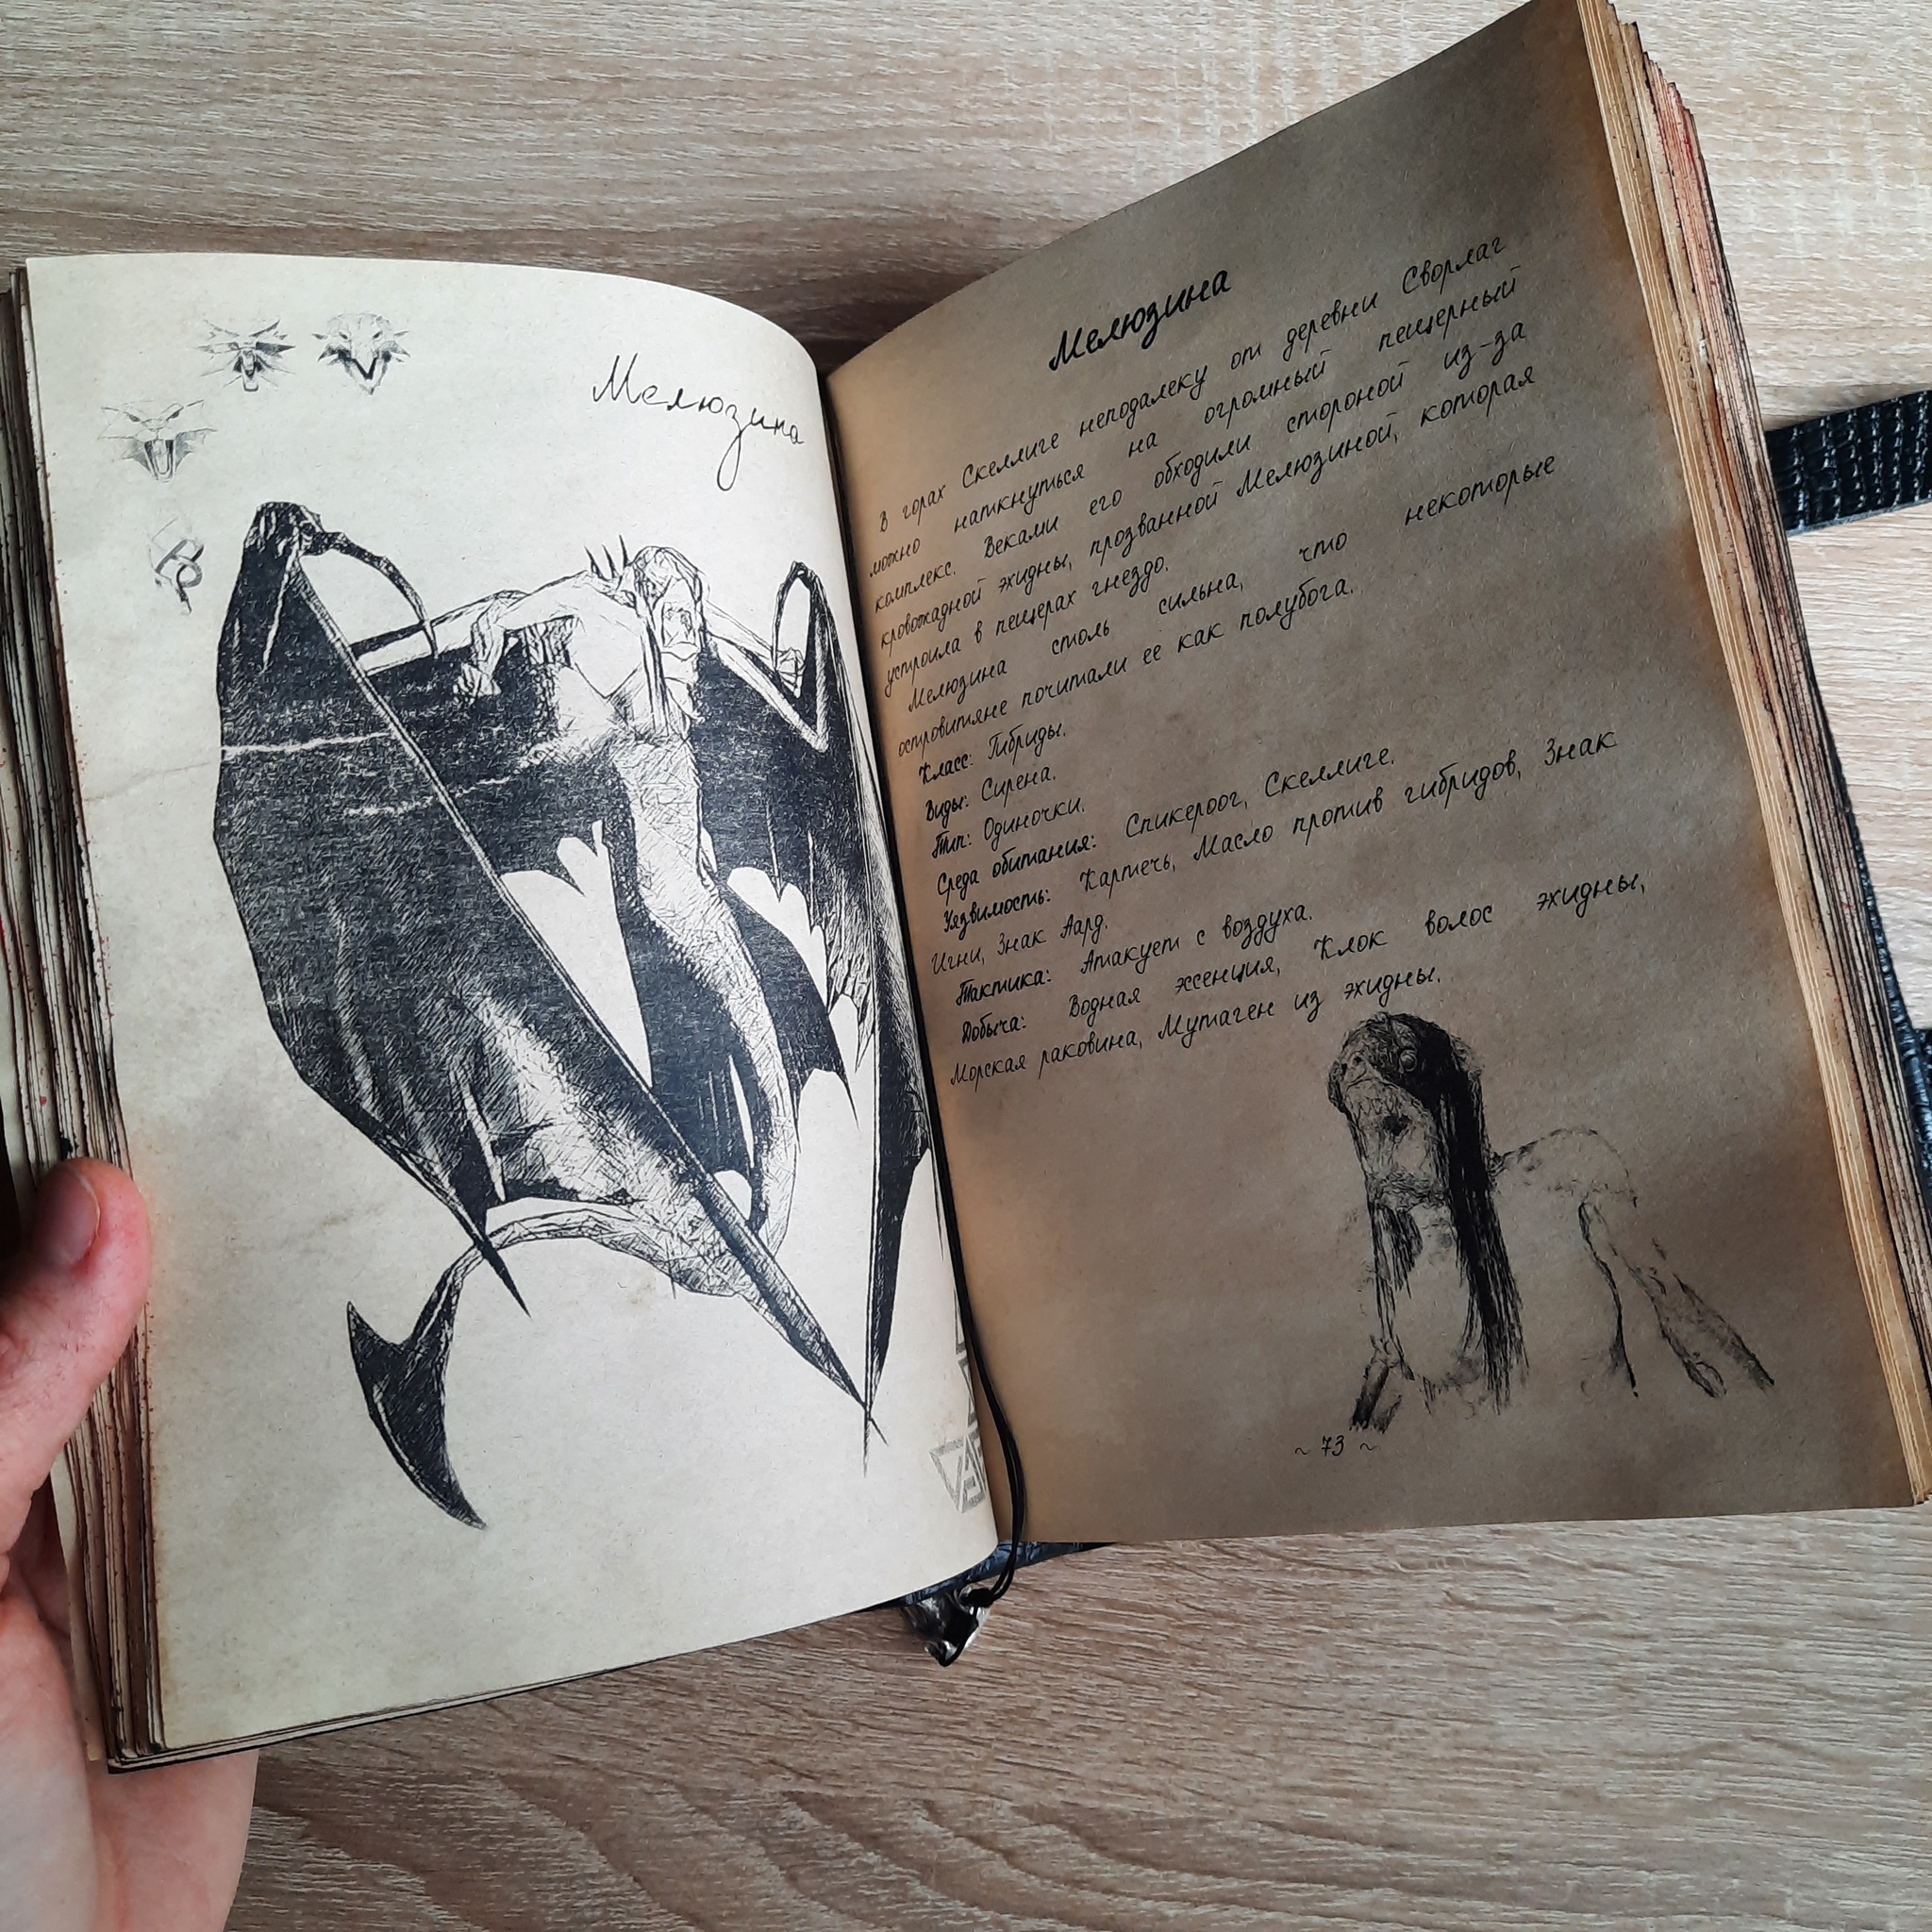 Мелюзина
Мелюзина
В горах Скеллиге неподалеку от деревни Сворлаг
можно наткнуться на огромный пещерный
комплекс. Веками его обходили стороной из-за
кровожадной эхидны, прозванной Мелюзиной, которая
устроила в пещерах гнездо.
Мелюзина столь сильна, что некоторые
островитяне почитали ее как полубога.
Класс: Гибриды.
Виды: Сирена.
Тип: Одиночки.
Среда обитания: Спикероог, Скеллиге.
Уязвимость: Картечь, Масло против гибридов, Знак
Игни, Знак Аард.
Тактика: Атакует с воздуха.
Добыча: Водная эссенция, Клок волос эхидны,
Морская раковина, Мутаген из эхидны.
~ 73 ~